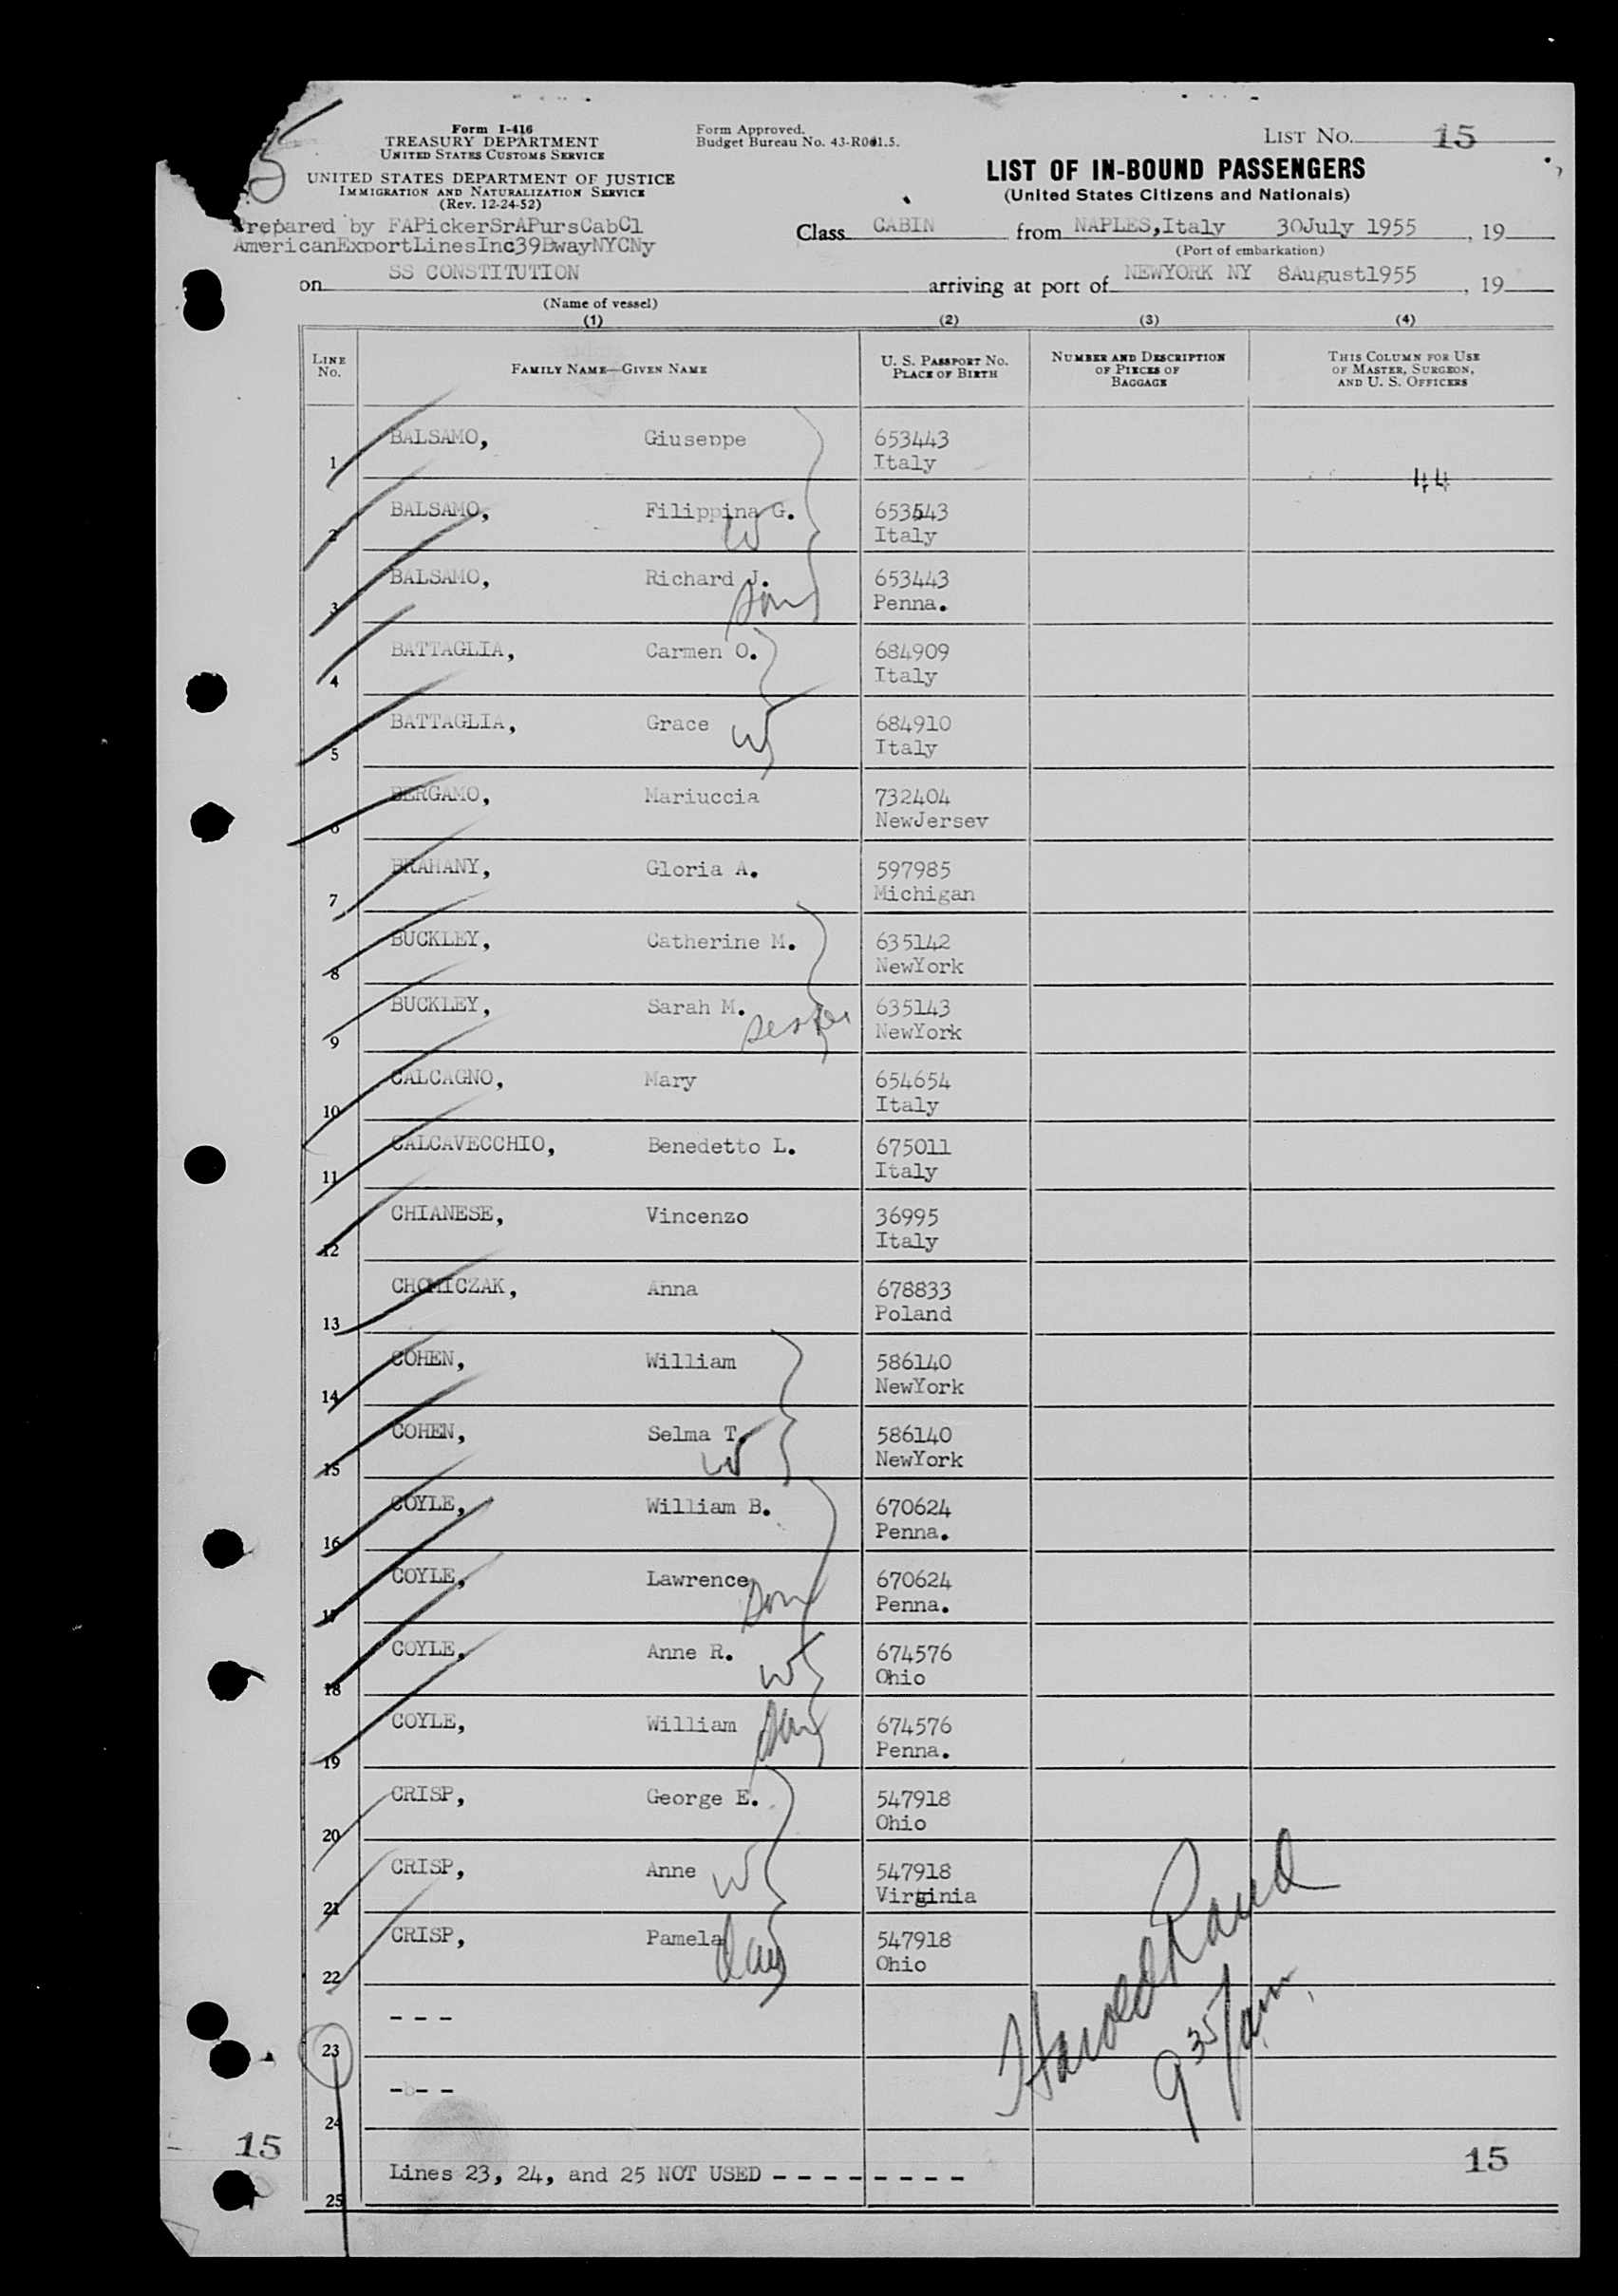 Form I-416
TREASURY DEPARTMENT
UNITED STATES CUSTOMS SERVICE
UNITED STATES DEPARTMENT OF JUSTICE
IMMIGRATION AND NATURALIZATION SERVICE
(Rev. 12-24-52)
Form Approved.
Budget Bureau No. 43-R001.5.
LIST NO. 15
LIST OF IN-BOUND PASSENGERS
(United States Citizens and Nationals)
Prepared by FAPickerSrAPursCabCl
AmericanExportLinesInc39BwayNYCNy
Class CABIN from NAPLES,Italy 30July 1955, 19
(Port of embarkation)
on SS CONSTITUTION arriving at port of NEWYORK NY 8August1955, 19
(Name of vessel)
(1) (2) (3) (4)
LINE NO. FAMILY NAME—GIVEN NAME U. S. PASSPORT NO. PLACE OF BIRTH NUMBER AND DESCRIPTION OF PIECES OF BAGGAGE THIS COLUMN FOR USE OF MASTER, SURGEON, AND U. S. OFFICERS
1 BALSAMO, Giuseppe 653443
Italy
44
2 BALSAMO, Filippina G. W 653543
Italy
3 BALSAMO, Richard J. son 653443
Penna.
4 BATTAGLIA, Carmen O. 684909
Italy
5 BATTAGLIA, Grace W 684910
Italy
6 BERGAMO, Mariuccia 732404
NewJersey
7 BRAHANY, Gloria A. 597985
Michigan
8 BUCKLEY, Catherine M. 635142
NewYork
9 BUCKLEY, Sarah M. sister 635143
NewYork
10 CALCAGNO, Mary 654654
Italy
11 CALCAVECCHIO, Benedetto L. 675011
Italy
12 CHIANESE, Vincenzo 36995
Italy
13 CHOMICZAK, Anna 678833
Poland
14 COHEN, William 586140
NewYork
15 COHEN, Selma T. W 586140
NewYork
16 COYLE, William B. 670624
Penna.
17 COYLE, Lawrence son 670624
Penna.
18 COYLE, Anne R. W 674576
Ohio
19 COYLE, William son 674576
Penna.
20 CRISP, George E. 547918
Ohio
21 CRISP, Anne W 547918
Virginia
22 CRISP, Pamela dau 547918
Ohio
Harold Rand
9 35/am
23 - - -
24 - - -
15
15
25 Lines 23, 24, and 25 NOT USED - - - - - - - -